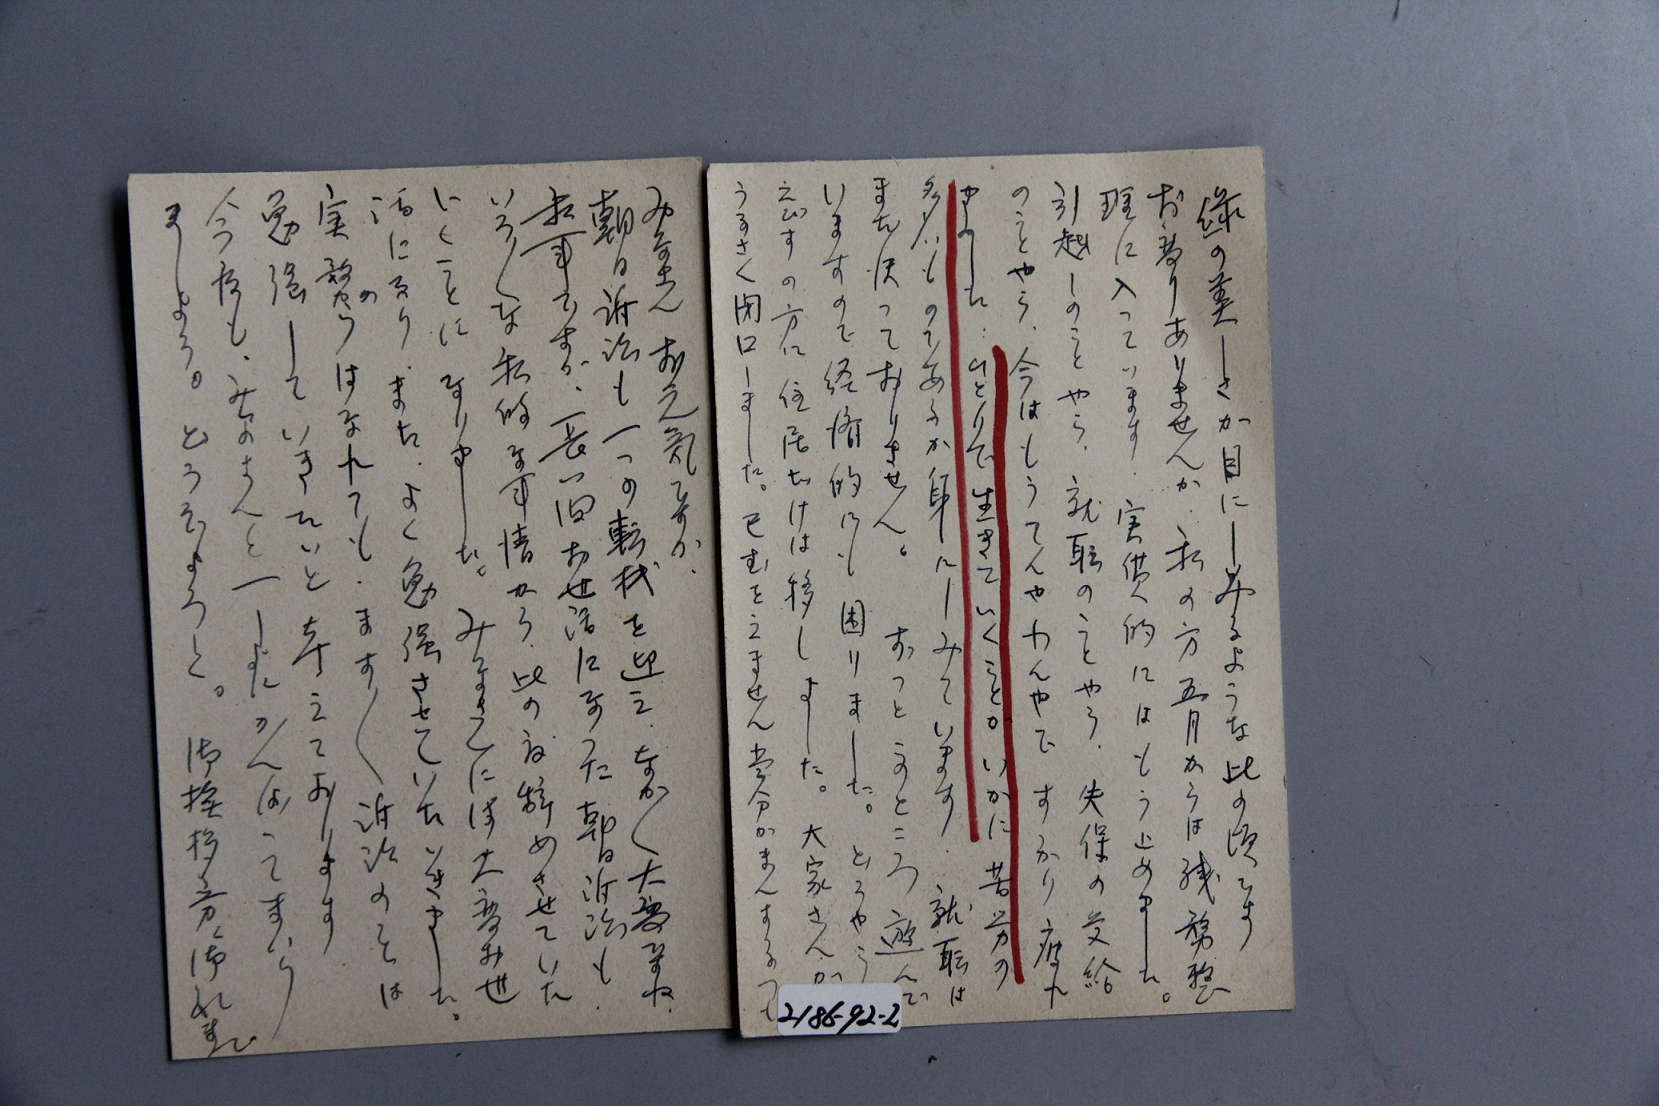 緑の美しさが目にしみるような此の頃です
お変りありませんか. 私の方 五月からは残務整
理に入っています. 実供的にはもう止めました。
引越しのことやら. 就職のことやら. 失保の受給
のことやら. 今はもうてんやわんやで すっかり疲れ
ました. ひとりで生きていくことがいかに苦労の
多いものであるか身にしみています. 就職は
まだ決っておりません。ずっと のところ 遊んで
いますので経済的にも困りました。どうやら
えびすの方に住居だけは移しました。大家さんが
うるさく閉口しました。已むをえません当分がまんするつも
みなさん お元気ですか.
朝日訴訟も一つの転機を迎え. なかなか大変ですね.
私事ですが、長い間お世話になった朝日訴訟も.
いろいろな私的な事情から. 此の為辞めさせていた
いくことになりました。みなさんには大変お世
話になり. また. よく勉強させていただきました。
実務のはなれても. ますます 訴訟のことは
勉強していきたいと考えております
今度も、みなさんと一しょにがんばってまいり
ましょう。どうぞよろしく。 御挨拶旁御礼まで
2186-92-2